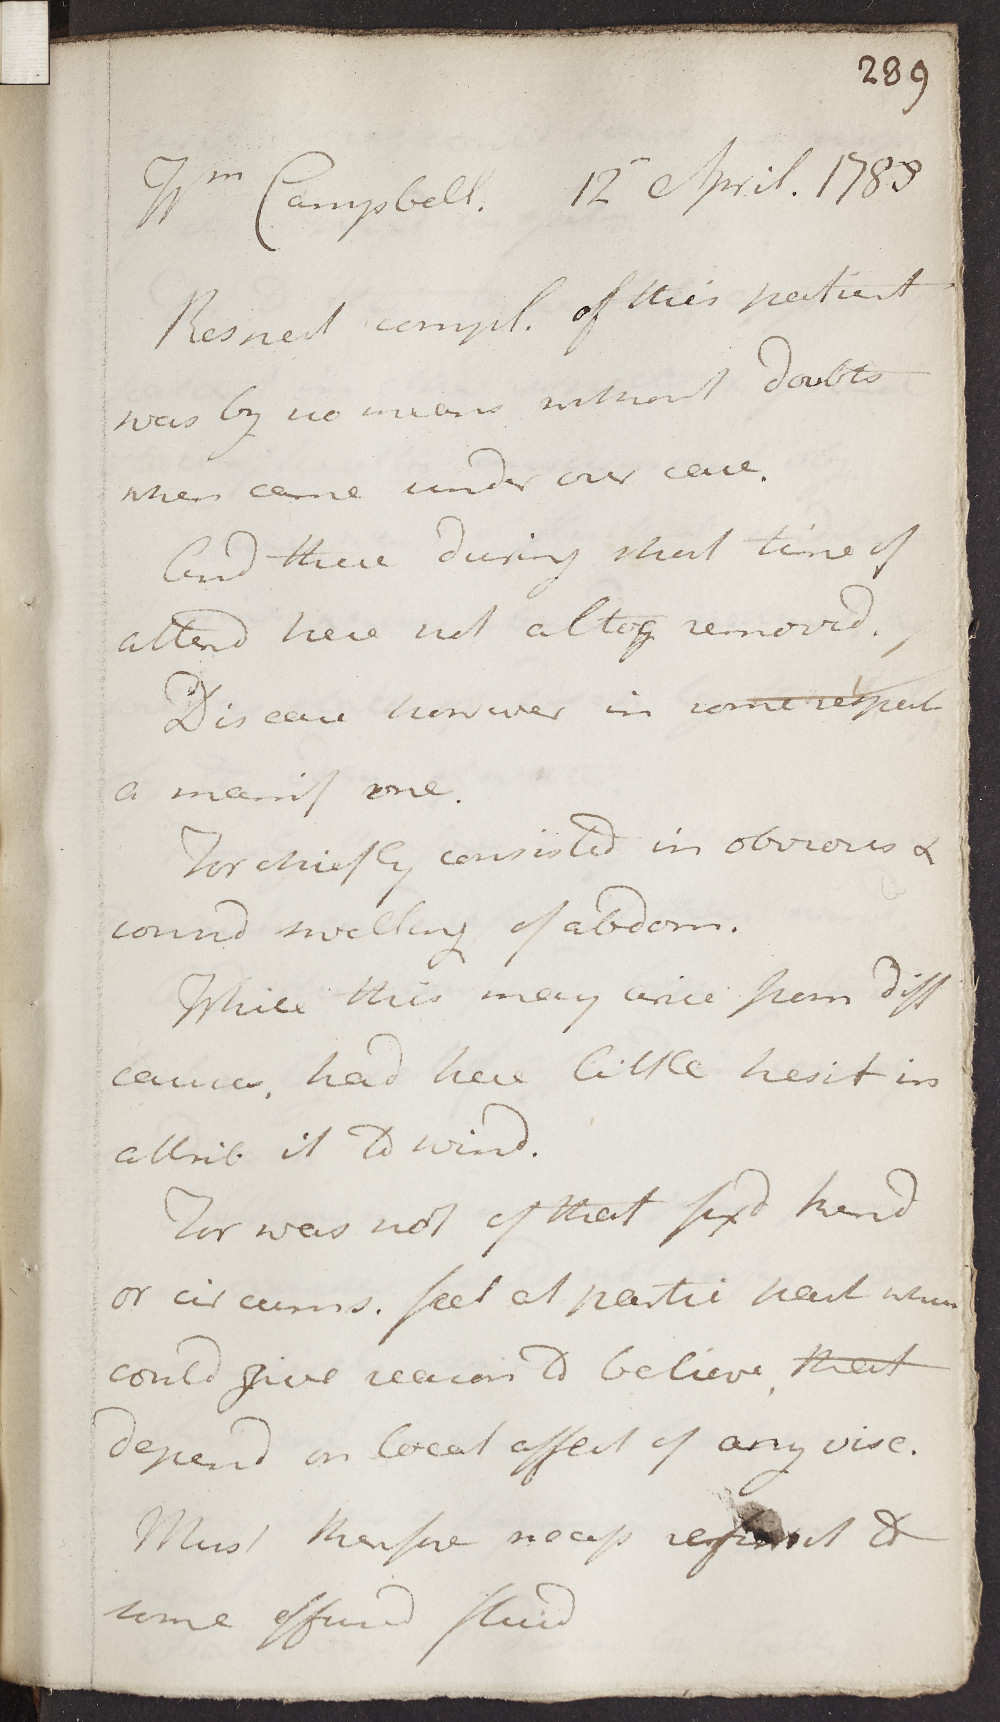 289
Wm Campbell. 12 April. 1783
Respect compl. of this patient
was by no means without doubts
when came under our care.
And these during short time of
attend here not altog removed.
Disease however in some respect
a manif one.
For chiefly consisted in obvious &
consid swelling of abdom.
While this may arise from diff
causes, had here little hesit in
attrib it to wind.
For was not of that fixd hard
or circums. feel at partic part when
could give reason to believe, that
depend on local affect of any visc.
Must therefore necess to
some effused fluid